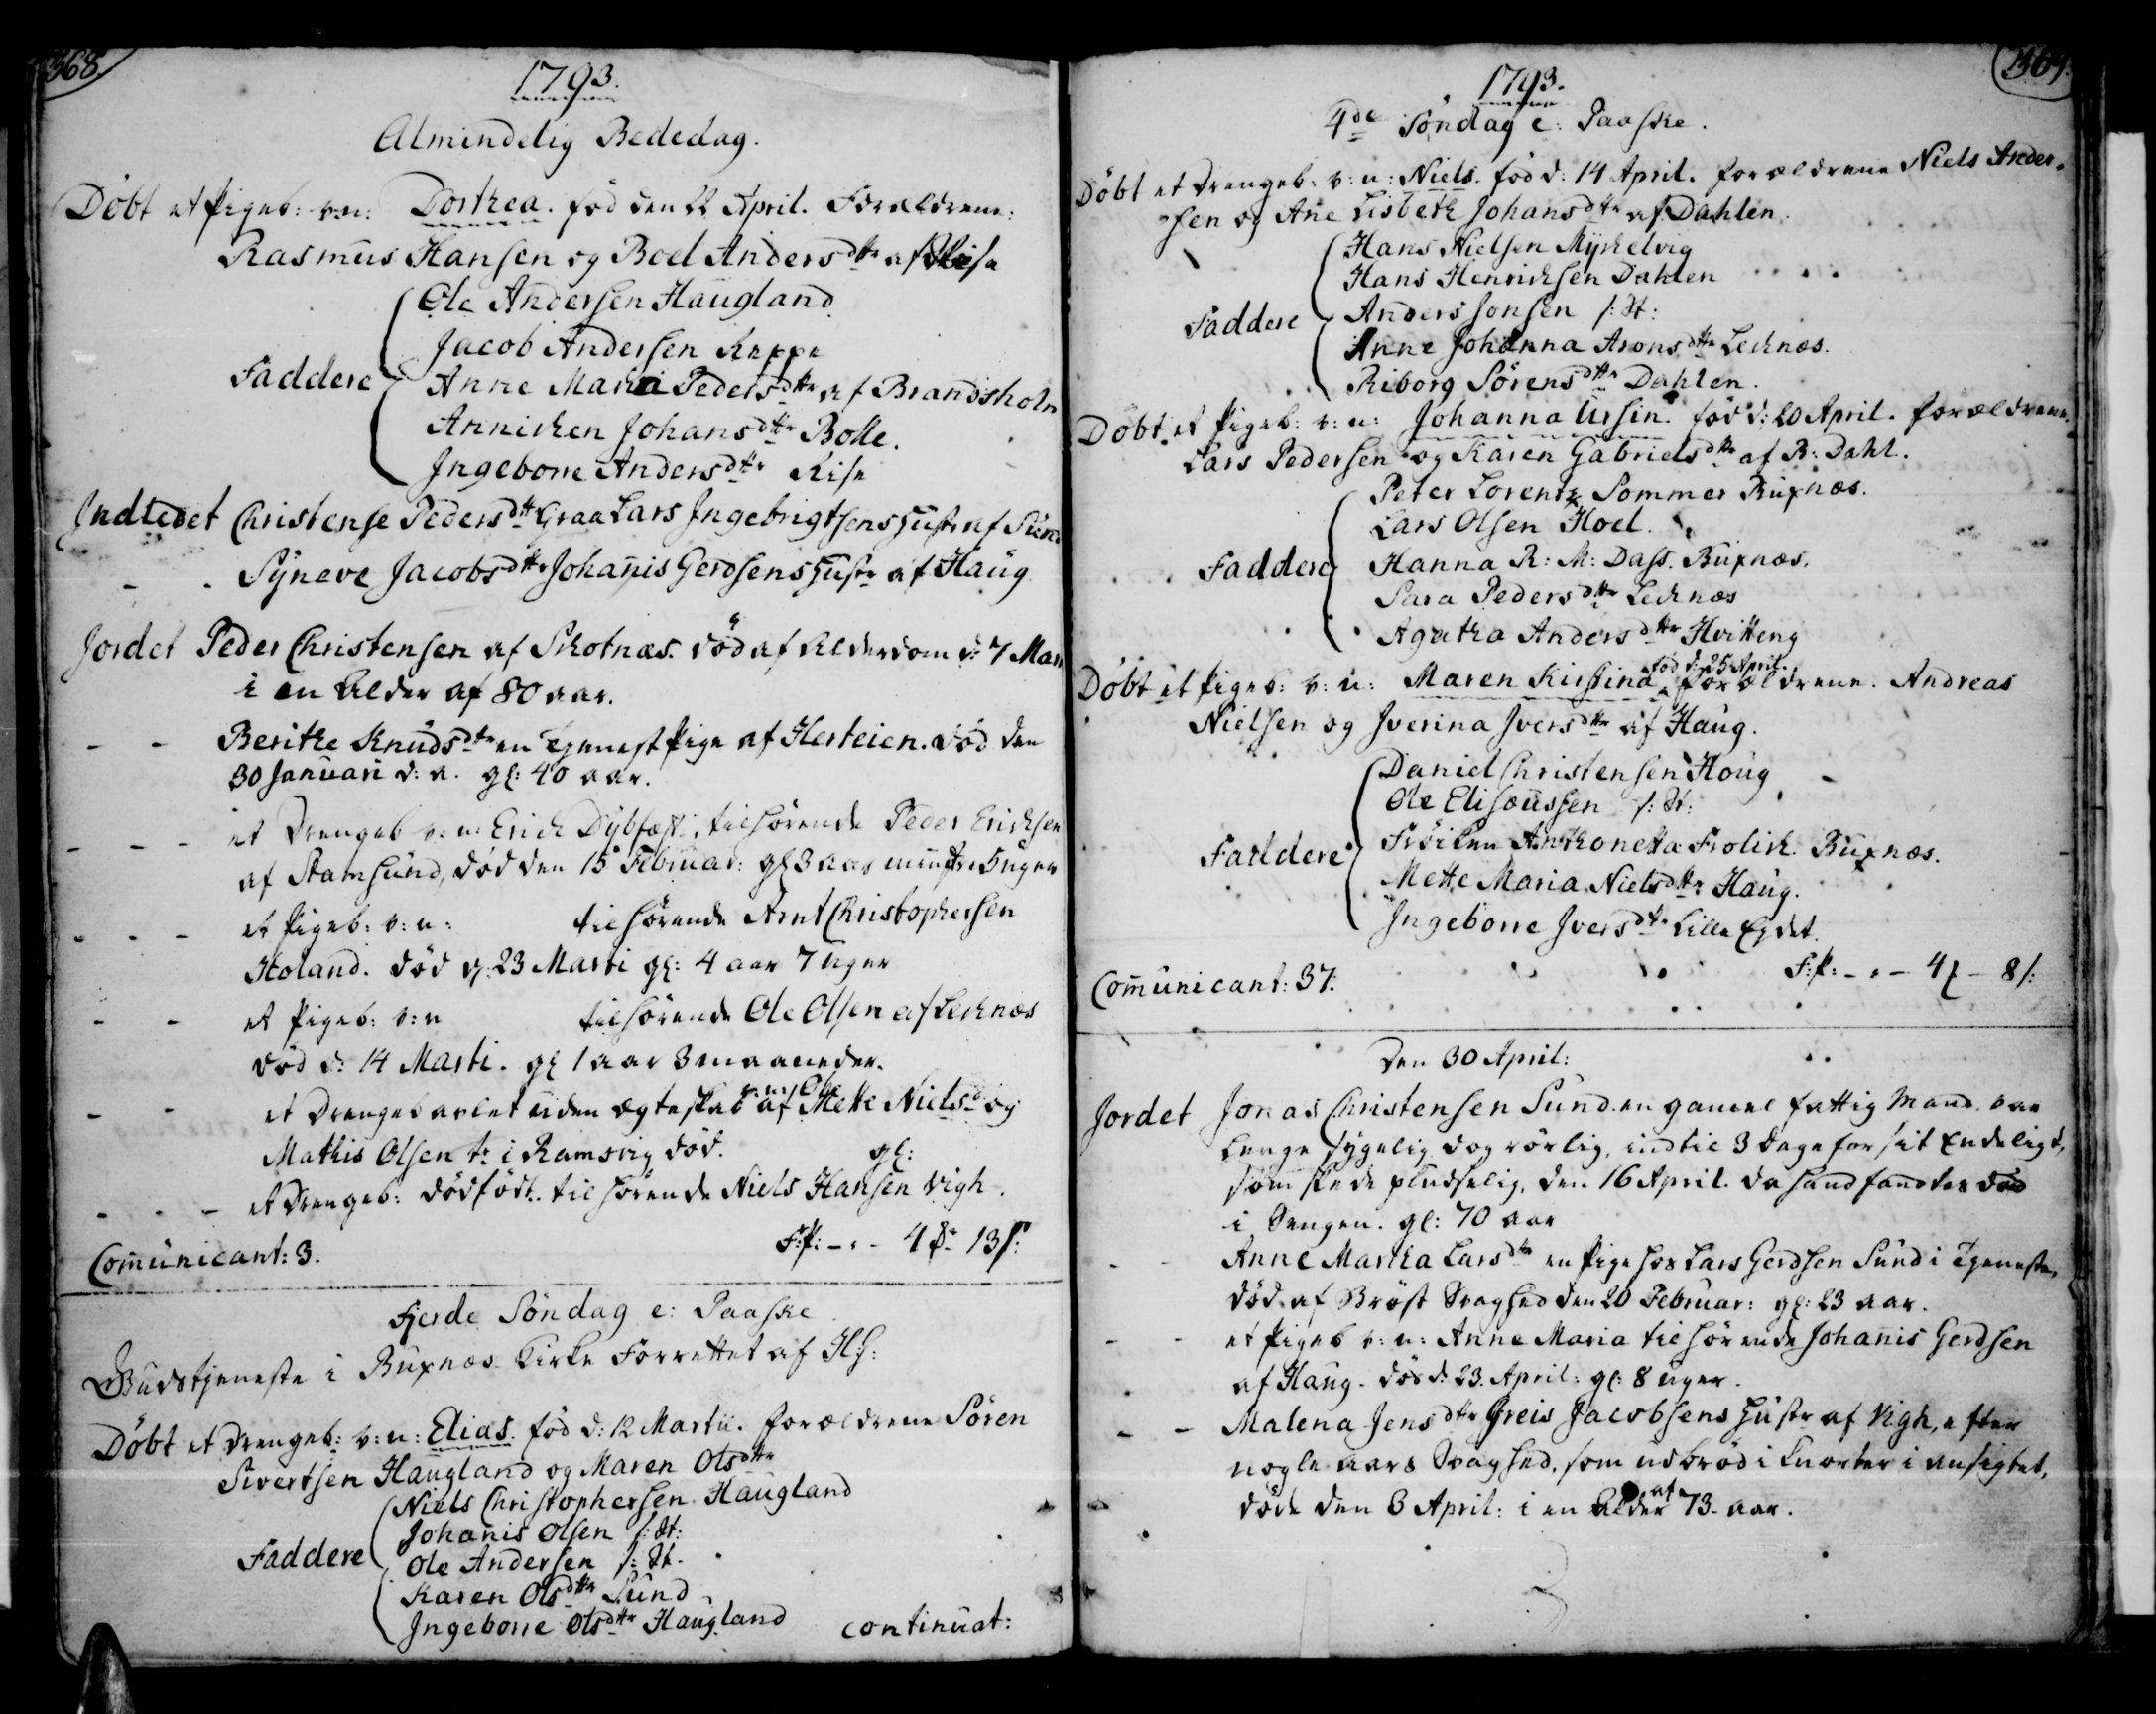 368.
1793.
Almindelig Bededag.
Döbt et Pigeb: v:n: Dorthea. fød den 22 April. Forældrene:
Rasmus Hansen og Boel Andersdttr af Rise
Ole Andersen Haugland
Jacob Andersen Reppe
Faddere Anne Maria Pedersdttr af Brandsholm
Annichen Johansdttr Bolle.
Ingeborre Andersdttr Rise
Indledet Christense Pedersdttr Graa Lars Ingebrigtsens Hustr af Sund
- - Syneve Jacobsdttr Johañis Gerdsens Hustr af Haug
Jordet Peder Christensen af Skotnæs. død af Alderdom d: 7 Mar
i en Alder af 80 aar.
- - Berithe Knudsdttr en Tjenest Pige af Herteien. død den
30 Januari d: a. gl: 40 aar.
- - - et Drengeb v:n: Erich Dybfæst, tilhørende Peder Erichsen
af Stamsund, død den 15 Februar: gl 3 aar mindre 5 uger
- - - et Pigeb: v:n: tilhørende Arnt Christophersen
Holand. død d: 23 Marti gl: 4 aar 7 uger
- - et Pigeb: v:n tilhørende Ole Olsen af Lechnæs
død d: 14 Marti. gl 1 aar 3 maaneder.
v:n: Ole
- - et Drengeb avlet uden ægteskab af Mette Nielsd og
Mathis Olsen tr i Ramsvig død. gl:
- - - et Drengeb: dødfødt. tilhørende Niels Hansen Vigh.
Comunicant: 3. F:P: - - 4 - 13 s:
Fjerde Söndag e: Paaske
Gudstjeneste i Buxnæs Kirke Forrettet af H:H:
Döbt et Drengeb: v:n: Elias. fød d: 12 Martii. Forældrene Sören
Sivertsen Haugland og Maren Olsdttr
Niels Christophersen Haugland
Johañis Olsen s: St:
Faddere Ole Andersen s: St.
Karen Olsdttr Sund
Ingeborre Olsdttr Haugland continuat:
369.
1793.
4de Söndag e: Paaske.
Döbt et Drengeb: v:n: Niels. fød d: 14 April. Forældrene Niels Ander-
sen og Ane Lisbeth Johansdttr af Dahlen.
Hans Nielsen Myhelvig
Hans Henrichsen Dahlen
Faddere Anders Jonsen s: St:
Anne Johanna Aronsdttr Lechnæs.
Riborg Sörensdttr Dahlen.
Döbt et Pigeb: v:n: Johanna Ursin. fød d: 20 April. Forældrene
Lars Pedersen og Karen Gabrielsdttr af R: Dahl.
Peter Lorentz Sommer Buxnæs.
Lars Olsen Hoel.
Faddere Hanna R: M: Dass. Buxnæs.
Sara Pedersdttr Lechnæs
Agatha Andersdttr Hvitteng
fød d: 25 April.
Döbt et Pigeb: v:n: Maren Kirstina. Forældrene. Andreas
Nielsen og Iverina Iversdttr af Haug.
Daniel Christensen Houg
Ole Elisæussen s: St:
Faddere Fröiken Anthonetta Frolich. Buxnæs.
Mette Maria Nielsdttr Haug.
Ingeborre Iversdttr Lille Eidet.
Comunicant: 37. F:P: - - 4 - 8 s:
Den 30 April:
Jordet Jonas Christensen Sund. en gamel fattig Mand. var
lenge sygelig dog rørlig, indtil 3 Dage for sit Endeligt,
som skede pludselig, den 16 April. da hand fandtes død
i Sengen. gl: 70 aar
- - Anne Martha Larsdttr en Pige hos Lars Gerdsen Sund i Tjeneste,
død. af Bröst Svaghed den 20 Februar: gl: 23 aar.
- - et Pigeb v:n: Anne Maria tilhørende Johañis Gerdsen
af Haug. død d: 23. April: gl: 8 uger.
- - Malena Jensdttr Greis Jacobsens Hustr af Vigh, efter
nogle aars Svaghed, som udbrød i Knorter i ansigtet,
døde den 3 April: i en Alder af 73. aar.